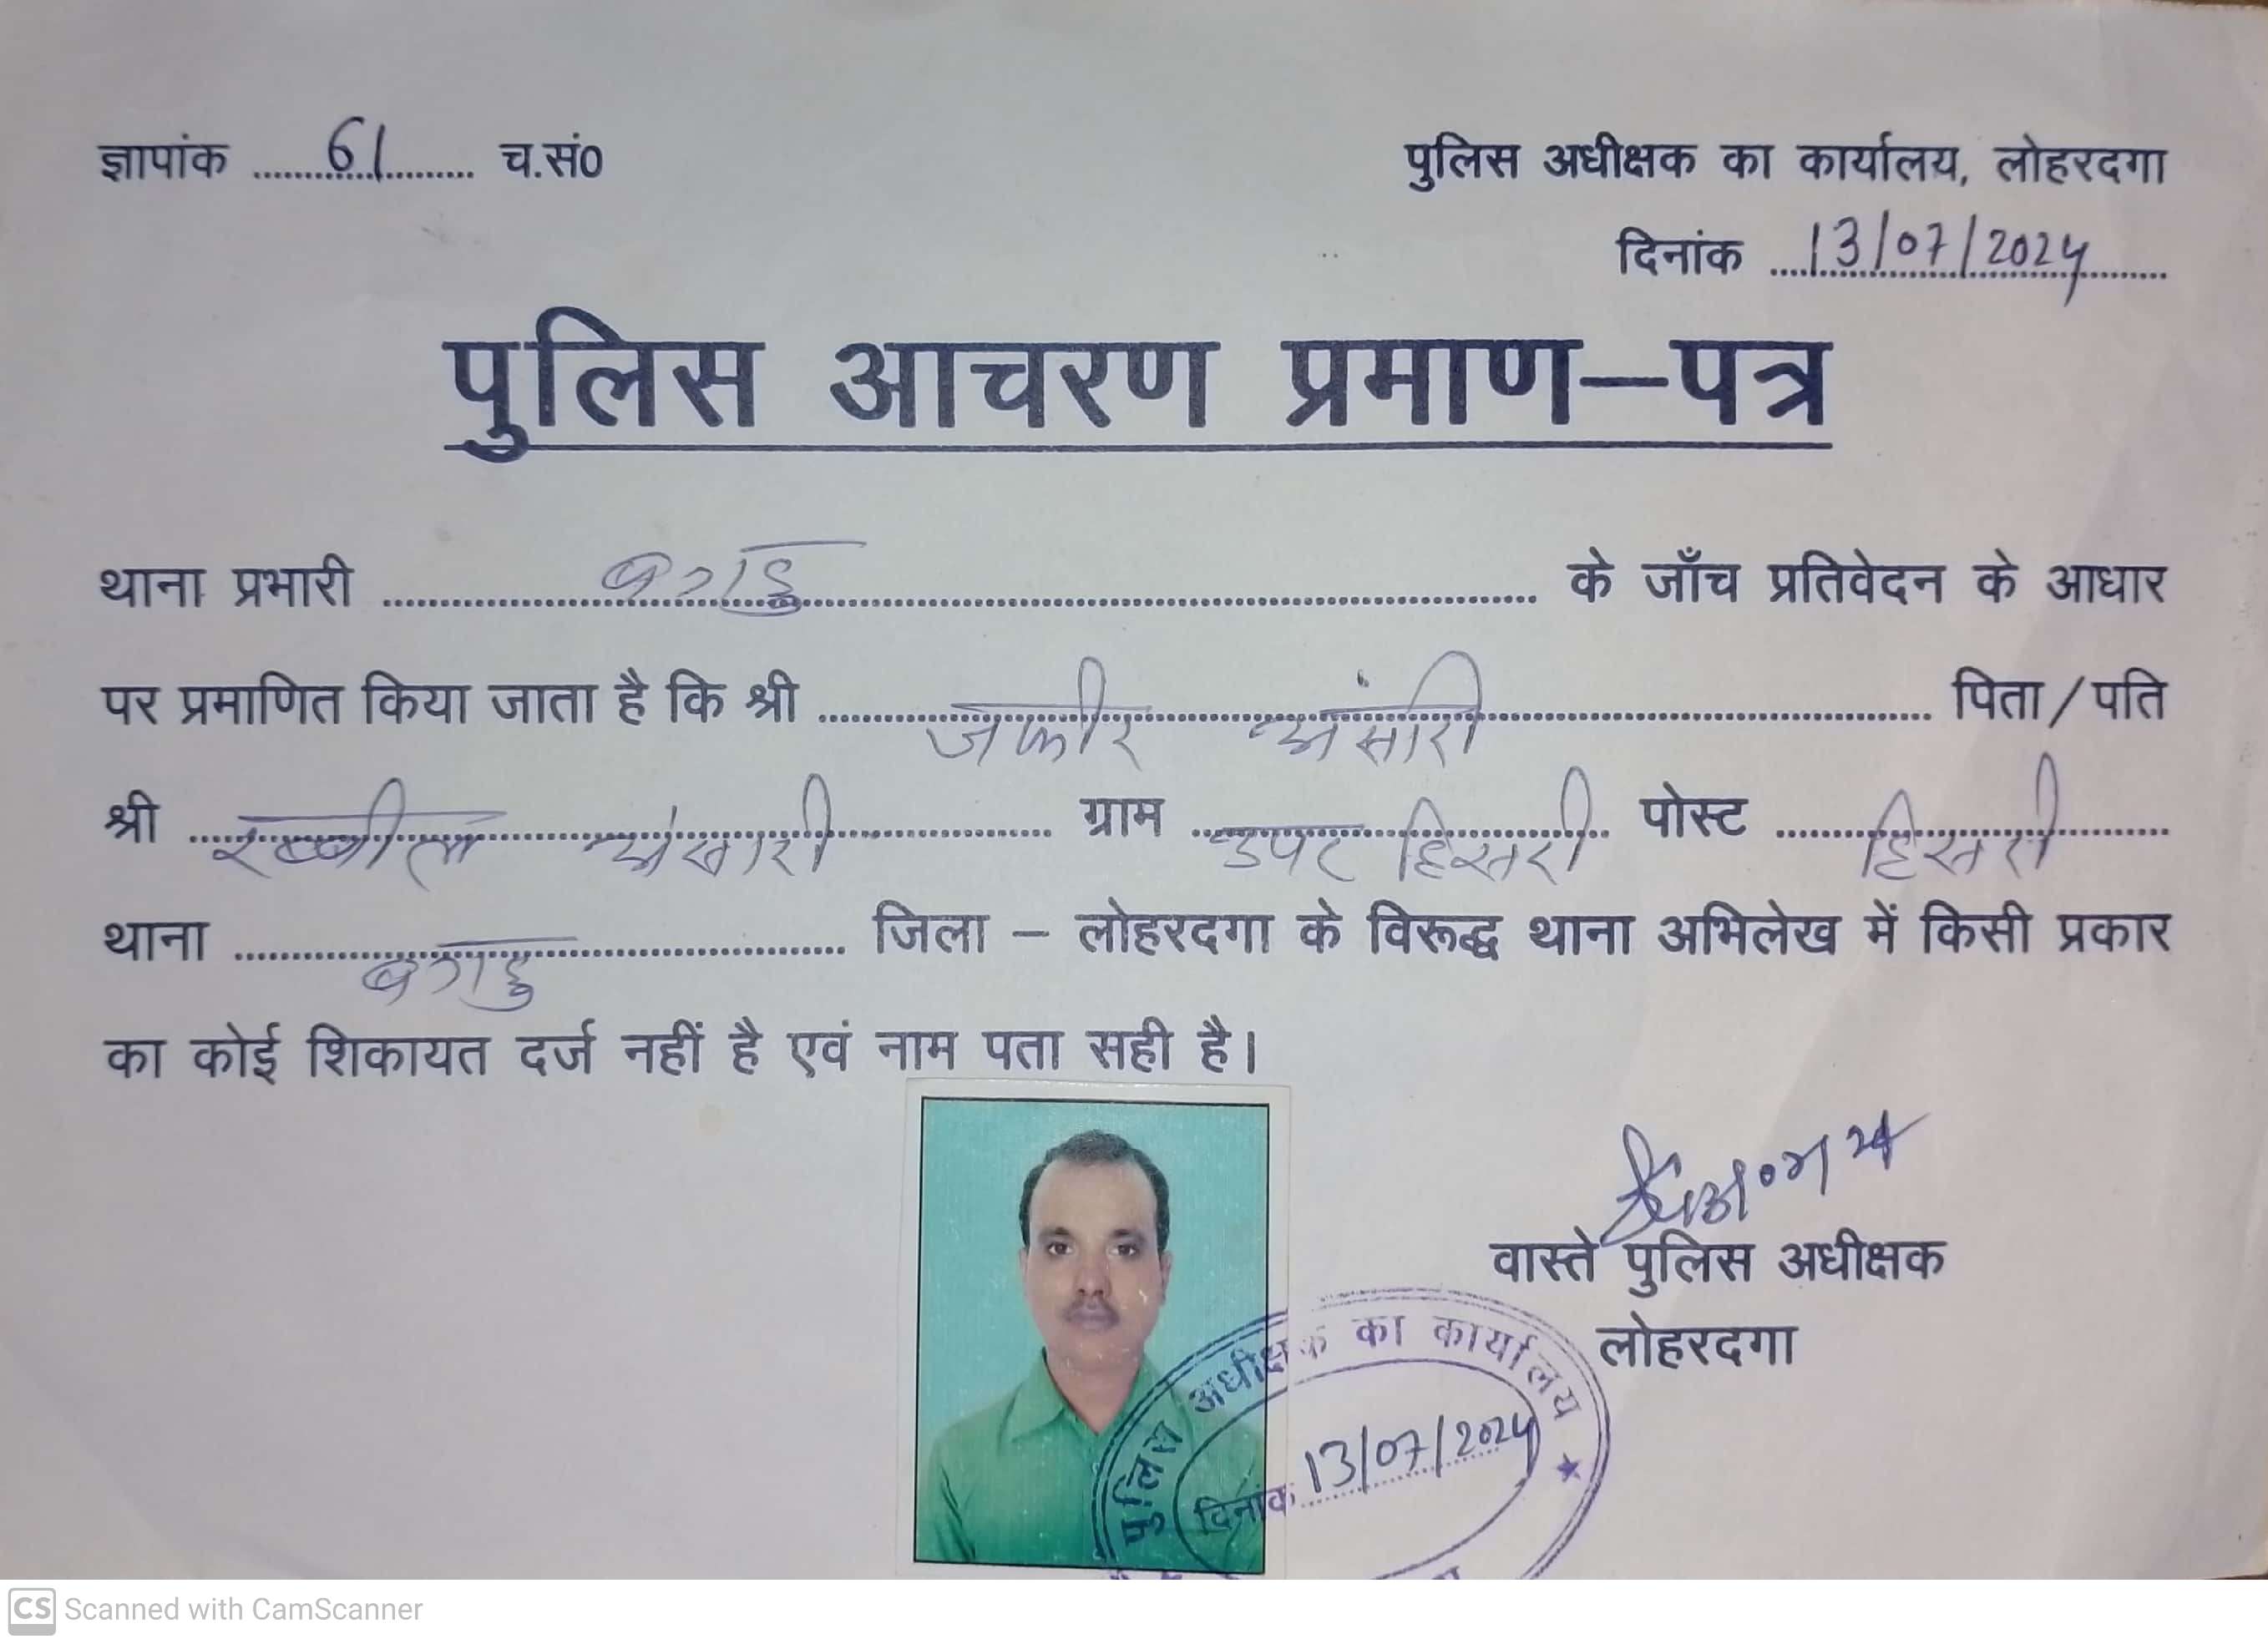 ज्ञापांक 61 च.सं0
पुलिस अधीक्षक का कार्यालय, लोहरदगा
दिनांक 13/07/2024
पुलिस आचरण प्रमाण–पत्र
थाना प्रभारी बगड़ु के जाँच प्रतिवेदन के आधार
पर प्रमाणित किया जाता है कि श्री जकीर अंसारी पिता/पति
श्री अंसारी ग्राम उपर हिसरी पोस्ट हिसरी
थाना बगड़ु जिला – लोहरदगा के विरूद्ध थाना अभिलेख में किसी प्रकार
का कोई शिकायत दर्ज नहीं है एवं नाम पता सही है।
वास्ते पुलिस अधीक्षक
लोहरदगा
पुलिस अधीक्षक का कार्यालय
दिनांक 13/07/2024
CS Scanned with CamScanner